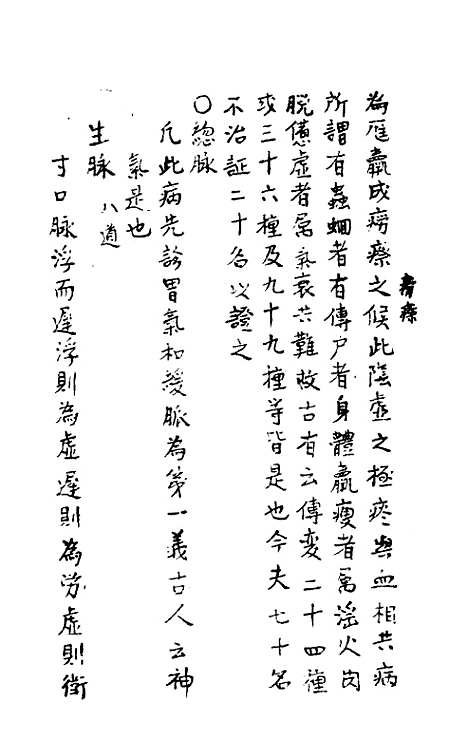 癆瘵
為尫羸成癆瘵之候此陰虛之極痰與血相共病
所謂有蟲蛔者有傳尸者身體羸瘦者属淫火肉
脱憊虛者属氣衰共難救古有云傳変二十四種
或三十六種及九十九種等皆是也今夫七十名
不治証二十各以證之
〇總脉
凡此病先診胃氣和緩脈為第一義古人云神
氣是也
生脉 八道
寸口脉浮而遲浮則為虛遲則為労虛則衛